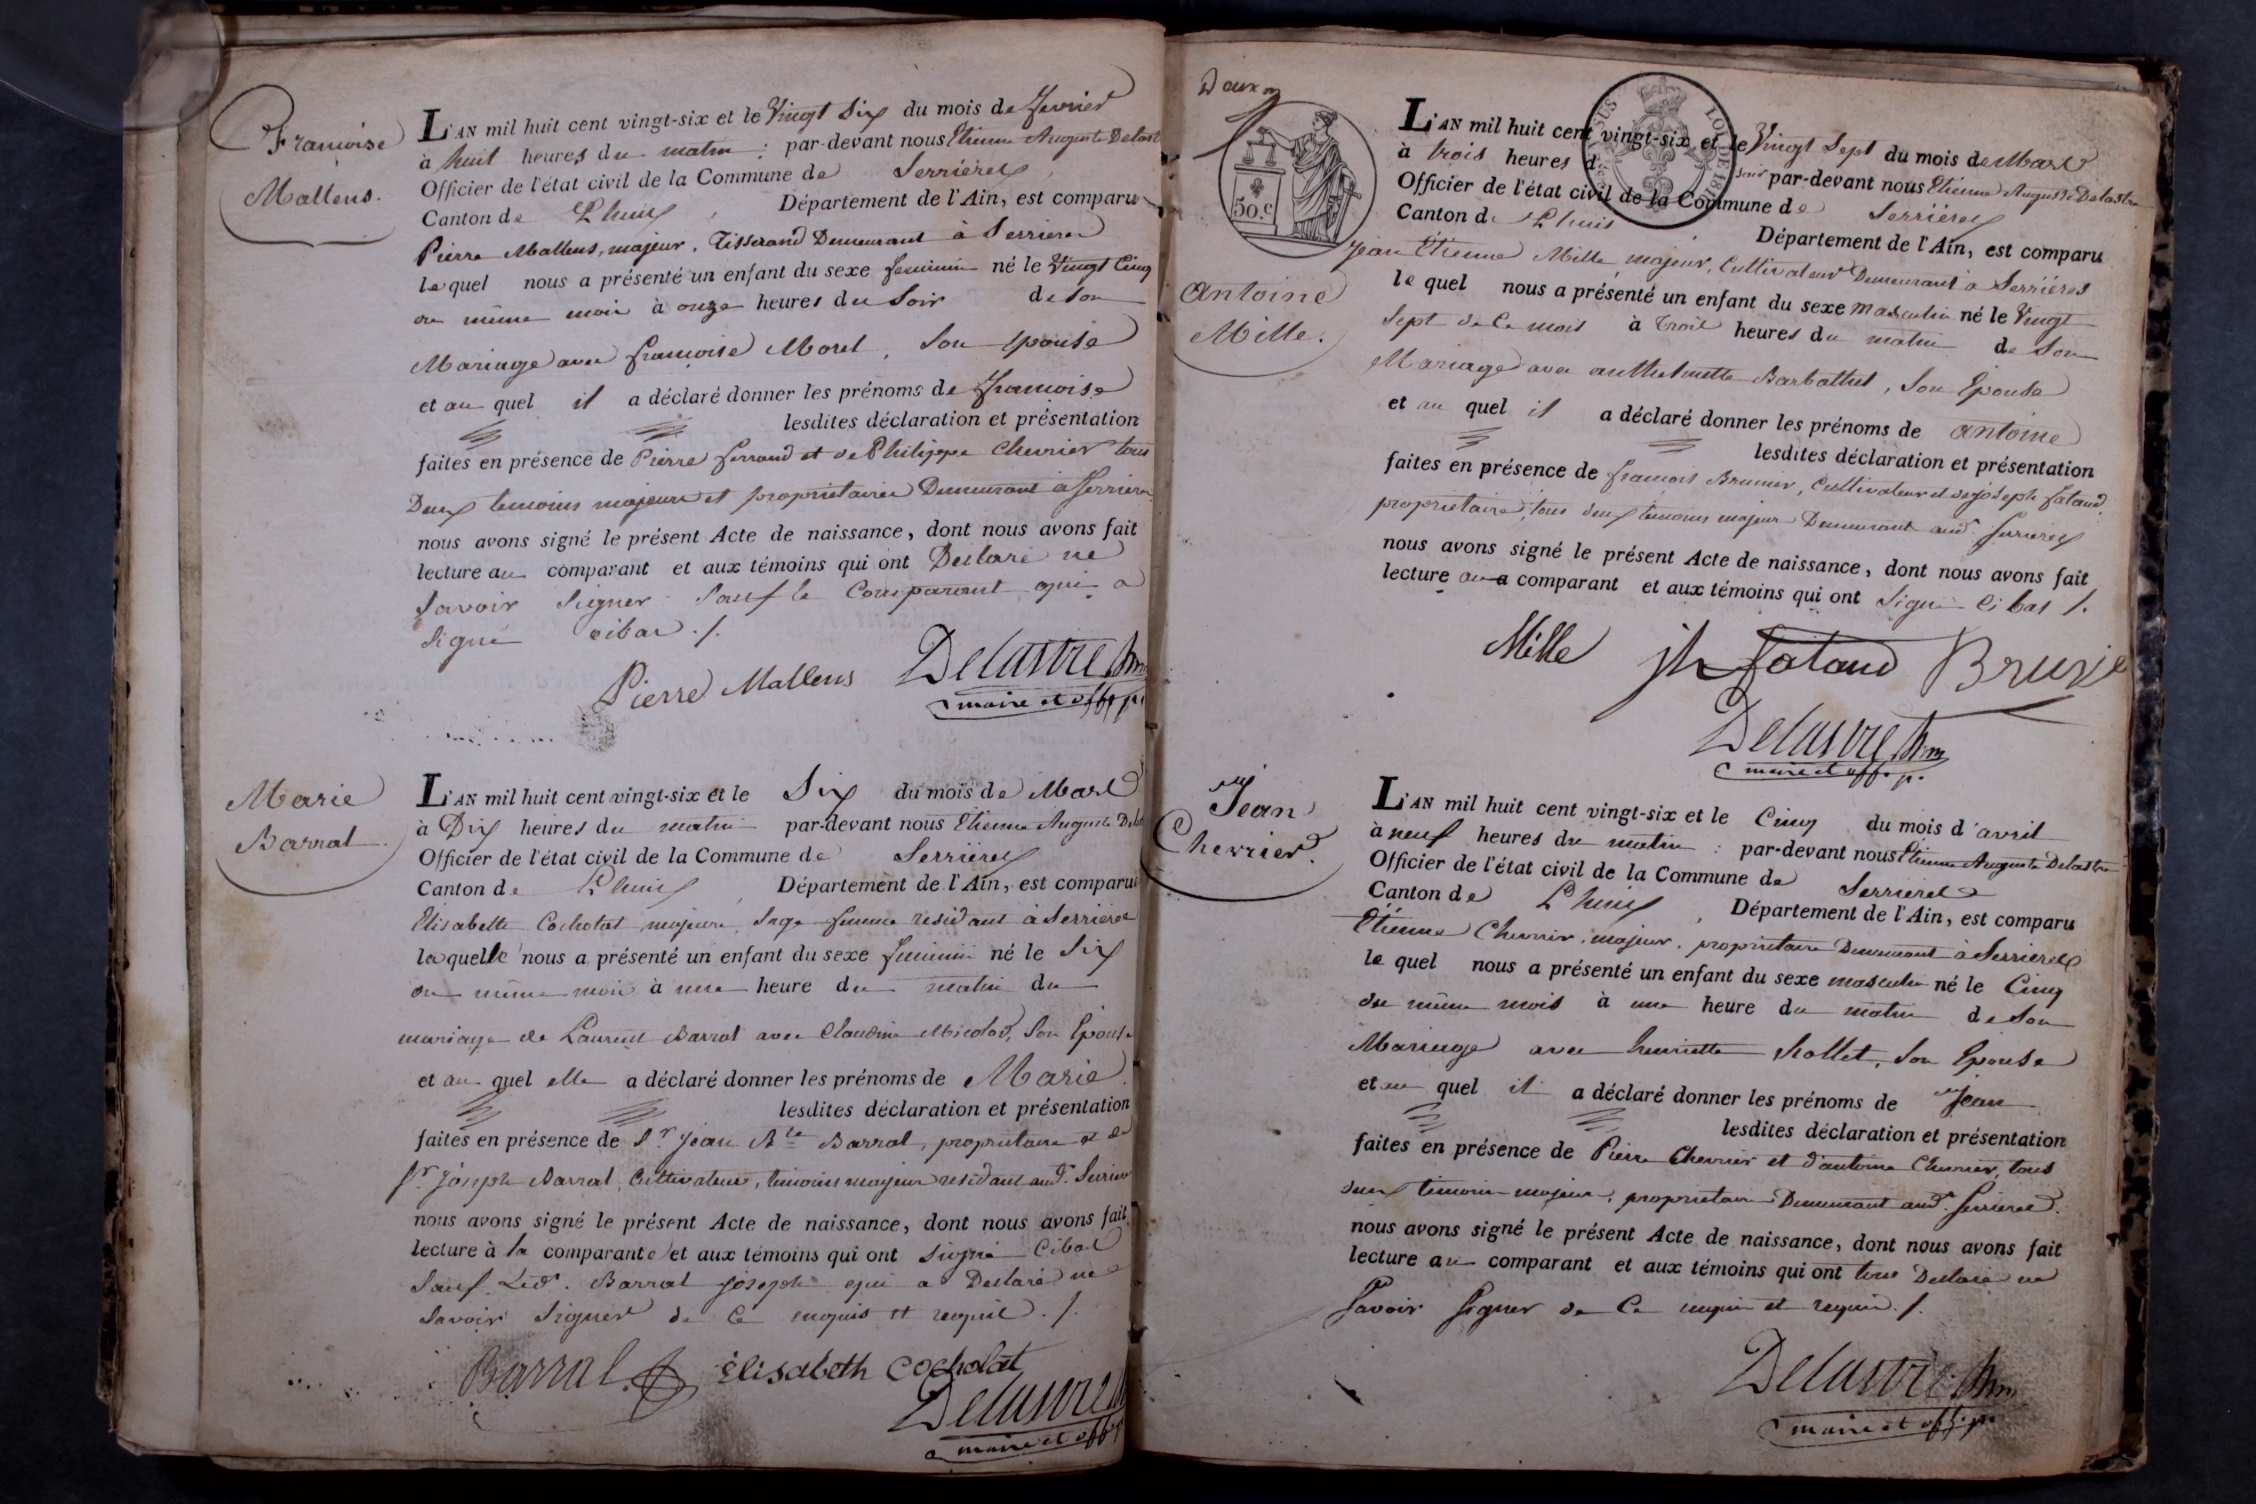 Françoise
Mallens.
L'AN mil huit cent vingt-six et le Vingt Six du mois de fevrier
à huit heures du matin : par-devant nous Etienne Auguste Delast
Officier de l'état civil de la Commune de Serriéres
Canton de Lhuis, Département de l'Ain, est comparu
Pierre Mallens, majeur, Tisserand Demeurant à Serrieres
le quel nous a présenté un enfant du sexe feminin né le Vingt Cinq
du même mois à onze heures du Soir de Son
Mariage avec françoise Morel, Son épouse
et au quel il a déclaré donner les prénoms de françoise
lesdites déclaration et présentation
faites en présence de Pierre ferrand et de Philippe Chevrier tous
Deux temoins majeurs et proprietaires Demeurant à Serrieres
nous avons signé le présent Acte de naissance, dont nous avons fait
lecture au comparant et aux témoins qui ont Declaré ne
Savoir Signer Sauf le Comparant qui a
Signé cibas ./.
Pierre Mallens Delastre
maire et off. p.
Marie
Barral.
L'AN mil huit cent vingt-six et le Six du mois de Mars
à Dix heures du matin par-devant nous Etienne Auguste Delast
Officier de l'état civil de la Commune de Serriéres
Canton de Lhuis, Département de l'Ain, est comparue
Elisabette Cochotat, majeure, Sage femme residant à Serrieres
laquelle nous a présenté un enfant du sexe feminin né le Six
du même mois à une heure du matin du
mariage de Laurent Barral avec Claudine Micolod, Son Epouse
et au quel elle a déclaré donner les prénoms de Marie.
lesdites déclaration et présentation
faites en présence de Sr. Jean Bte Barral, proprietaire et de
Sr. Joseph Barral, Cultivateur, temoins majeur residant aud. Serrieres
nous avons signé le présent Acte de naissance, dont nous avons fait
lecture à la comparante et aux témoins qui ont signé Cibas
Sauf Led. Barral joseph qui a Declaré ne
Savoir Signer de Ce enquis et requis ./.
Barral Élisabeth cocholat
Delastre
maire et off. p.
Deux
50.c
Antoine
Mille.
L'AN mil huit cent vingt-six et le Vingt Sept du mois de Mars
à trois heures du soir par-devant nous Etienne Auguste Delastre
Officier de l'état civil de la Commune de Serriéres
Canton de Lhuis, Département de l'Ain, est comparu
Jean Etienne Mille, majeur, Cultivateur Demeurant à Serriéres
le quel nous a présenté un enfant du sexe masculin né le Vingt
Sept de Ce mois à trois heures du matin de Son
Mariage avec anthelmette Barbottel, Son Epouse
et au quel il a déclaré donner les prénoms de antoine
lesdites déclaration et présentation
faites en présence de francois Brunier, Cultivateur et de joseph fataud,
proprietaire, tous deux temoins majeur Demeurant aud. Serrieres
nous avons signé le présent Acte de naissance, dont nous avons fait
lecture au comparant et aux témoins qui ont Signé Cibas ./.
Mille jh fataud
Delastre
maire et off. p.
Jean
Chevrier.
L'AN mil huit cent vingt-six et le Cinq du mois d'avril
à neuf heures du matin : par-devant nous Etienne Auguste Delastre
Officier de l'état civil de la Commune de Serrieres
Canton de Lhuis, Département de l'Ain, est comparu
Etienne Chevrier, majeur, proprietaire Demeurant à Serrieres
le quel nous a présenté un enfant du sexe masculin né le Cinq
du même mois à une heure du matin de Son
Mariage avec henriette Sollet, Son Epouse
et au quel il a déclaré donner les prénoms de Jean
lesdites déclaration et présentation
faites en présence de Pierre Chevrier et d'antoine Chevrier, tous
deux temoin majeur, proprietaire Demeurant aud. Serrieres.
nous avons signé le présent Acte de naissance, dont nous avons fait
lecture au comparant et aux témoins qui ont tous Declaré ne
Savoir Signer de Ce enquis et requis ./.
Delastre
maire et off. p.